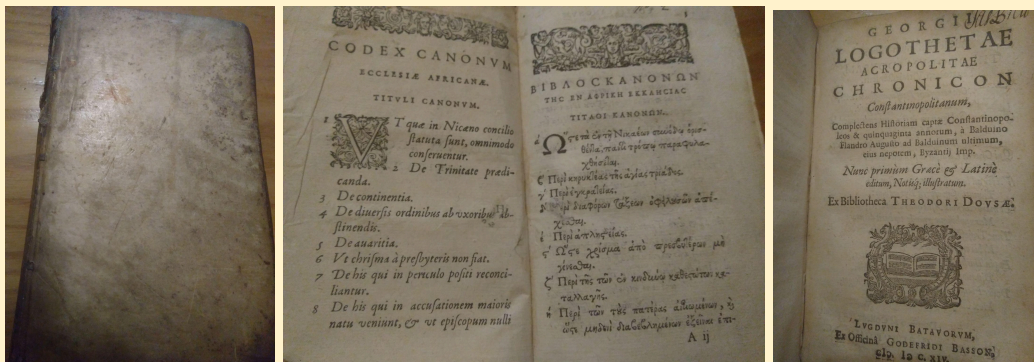 CODEX CANONVM
ECCLESIÆ AFRICANÆ.
TITVLI CANONVM.
1 VT quæ in Nicæno concilio
statuta sunt, omnimodo
conserventur.
2 De Trinitate prædi-
canda.
3 De continentia.
4 De diversis ordinibus ab vxoribus ab-
stinendis.
5 De avaritia.
6 Vt chrisma à presbyteris non fiat.
7 De his qui in periculo positi reconci-
liantur.
8 De his qui in accusationem maioris
natu veniunt, & vt episcopum nulli
ΒΙΒΛΟΣ ΚΑΝΟΝΩΝ
ΤΗΣ ΕΝ ΑΦΡΙΚΗ ΕΚΚΛΗΣΙΑΣ
ΤΙΤΛΟΙ ΚΑΝΟΝΩΝ.
Περὶ κηρυξεως τῆς ἁγίας τριάδος.
Περὶ ἐγκρατείας.
Περὶ ἀπληστίας.
χρίσμα ἀπὸ πρεσβυτέρων μὴ
γίνεσθαι.
ταλλαγῆς.
A ij
GEORGII
LOGOTHETAE
ACROPOLITAE
CHRONICON
Constantinopolitanum,
Complectens Historiam captæ Constantinopo-
leos & quinquaginta annorum, à Balduino
Flandro Augusto ad Balduinum ultimum,
eius nepotem, Byzantij Imp.
Nunc primum Græcè & Latinè
editum, Notisq; illustratum.
Ex Bibliotheca THEODORI DOVSÆ.
LVGDVNI BATAVORVM,
Ex Officinâ GODEFRIDI BASSON,
CIƆ. IƆ C. XIV.